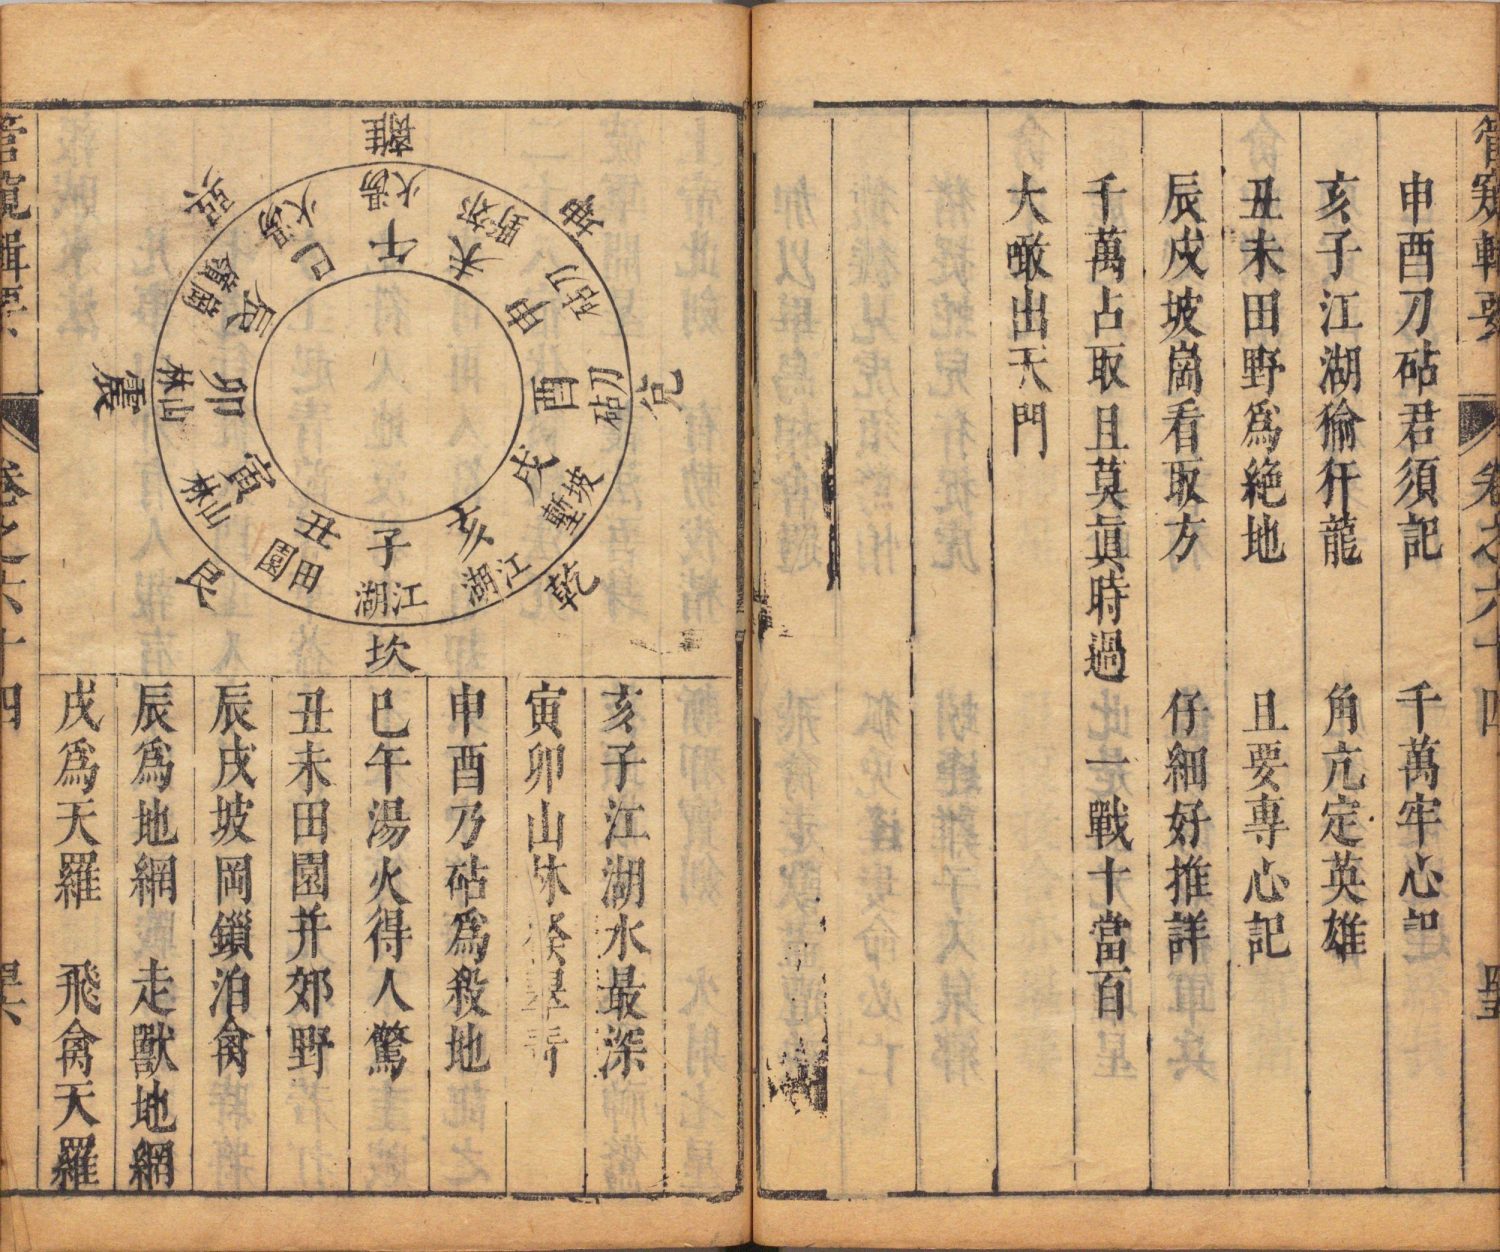 管窺輯要 卷之六十四
申酉刀砧君須記 千萬牢心記
亥子江湖獝犴龍 角亢定英雄
丑未田野為絶地 且要專心記
辰戌坡崗看取方 仔細好推詳
千萬占取且莫眞時過 一戰十當百
大瞰出天門
離
坤
兌
乾
坎
艮
震
巽
午 湯火
未 郊野
申 刀砧
酉 刀砧
戌 坡塹
亥 江湖
子 江湖
丑 田園
寅 山林
卯 山林
辰
巳 湯火
亥子江湖水最深
寅卯山林
申酉乃砧為殺地
巳午湯火得人驚
丑未田園并郊野
辰戌坡岡鎖泊禽
辰為地網 走獸地網
戌為天羅 飛禽天羅
管窺輯要 卷之六十四